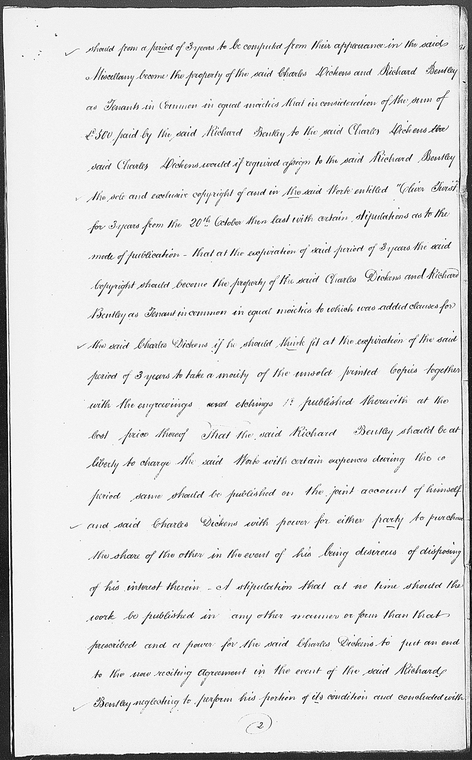 should from a period of 3 years to be computed from their appearance in the said
Miscellany become the property of the said Charles Dickens and Richard Bentley
as Tenants in Common in equal moieties that in consideration of the sum of
£500 paid by the said Richard Bentley to the said Charles Dickens the
said Charles Dickens would if required assign to the said Richard Bentley
the sole and exclusive copyright of and in the said Work entitled "Oliver Twist"
for 3 years from the 20th October then last with certain stipulations as to the
mode of publication - that at the expiration of said period of 3 years the said
copyright should become the property of the said Charles Dickens and Richard
Bentley as Tenants in common in equal moieties to which was added clauses for
the said Charles Dickens if he should think fit at the expiration of the said
period of 3 years to take a moiety of the unsold printed Copies together
with the engravings and etchings published therewith at the
cost price thereof That the said Richard Bentley should be at
liberty to charge the said Work with certain expences during the
period same should be published on the joint account of himself
and said Charles Dickens with power for either party to purchase
the share of the other in the event of his being desirous of disposing
of his interest therein - A stipulation that at no time should the
work be published in any other manner or form than that
prescribed and a power for the said Charles Dickens to put an end
to the now reciting Agreement in the event of the said Richard
Bentley neglecting to perform his portion of its condition and concluded with
2